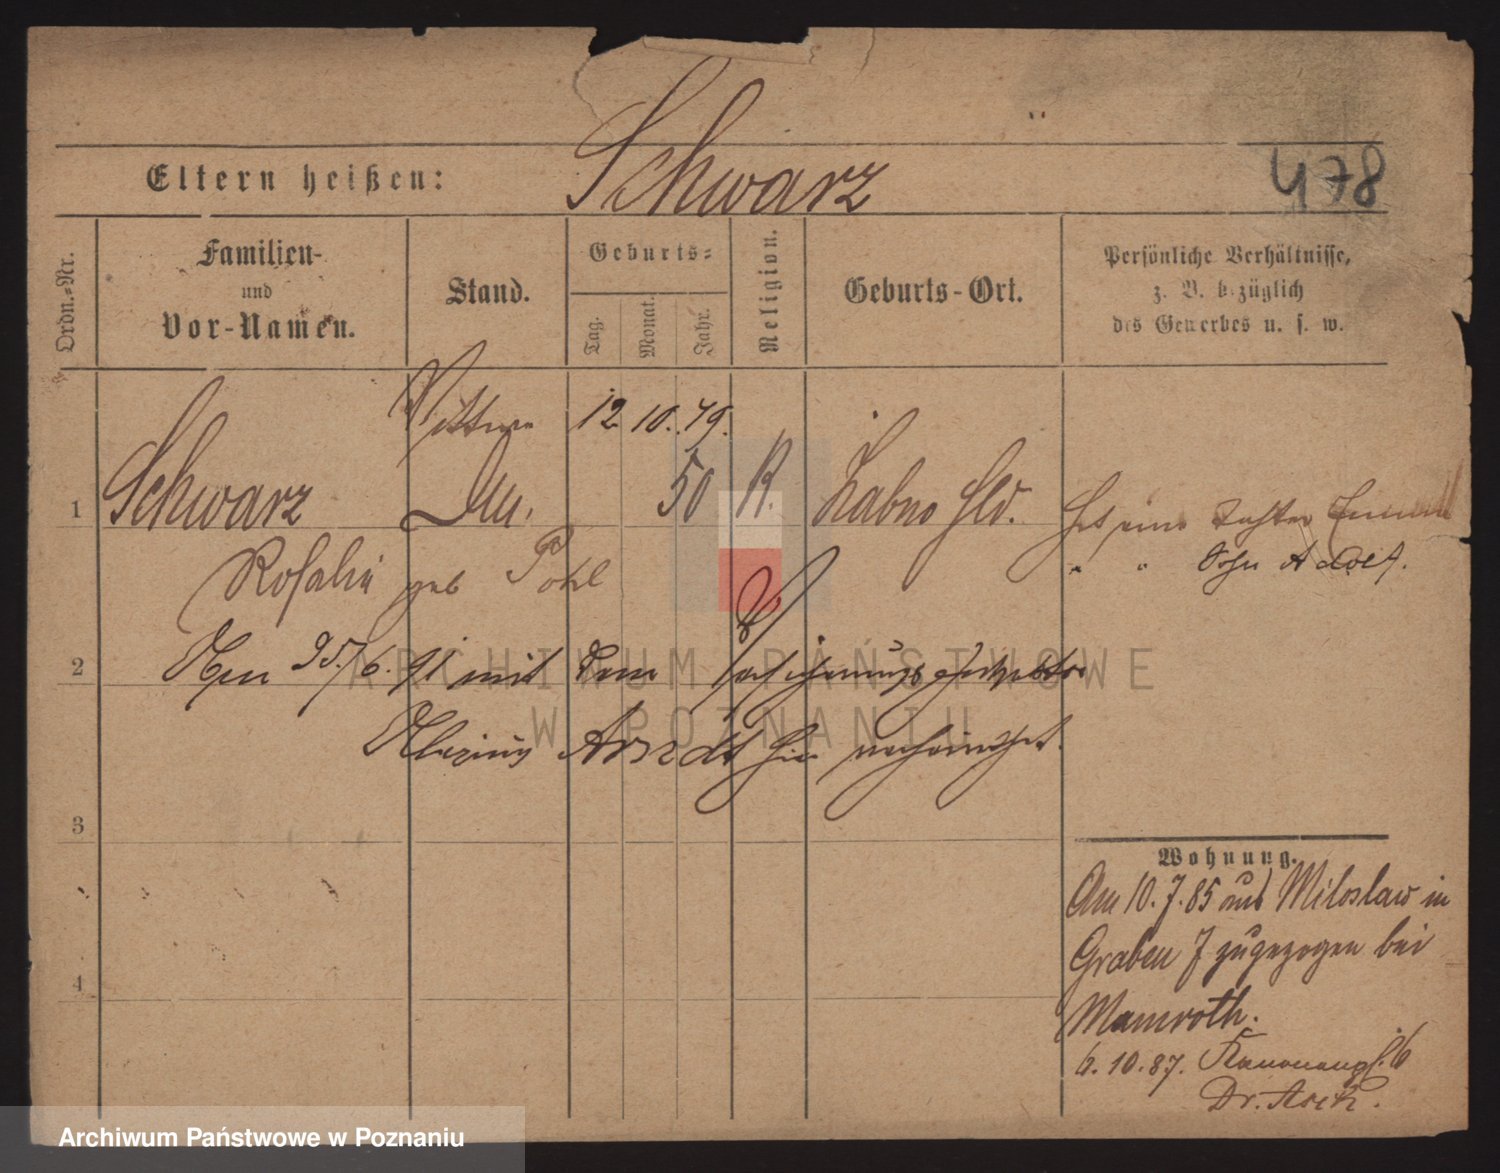 Schwarz
Eltern heißen:
478
Ordn.-Nr.
Familien-
und
Vor-Namen.
Stand.
Geburts-
Tag.
Monat.
Jahr.
Religion.
Geburts-Ort.
Persönliche Verhältnisse,
z. B. bezüglich
des Gewerbes u. s. w.
Wittwe 12. 10. 79.
1 Schwarz 50 K. Zabno
Hat eine Tochter
" " Sohn Adolf.
Rosalie geb Pohl
2 mit dem
ARCHIWUM PAŃSTWOWE
W POZNANIU
Arndt hier verheirathet.
3
Wohnung.
Am 10. 7. 85 aus Miloslaw in
Graben 7 zugezogen bei
Mamroth.
4
6. 10. 87. Kanonenpl. 6
Dr. Asch.
Archiwum Państwowe w Poznaniu